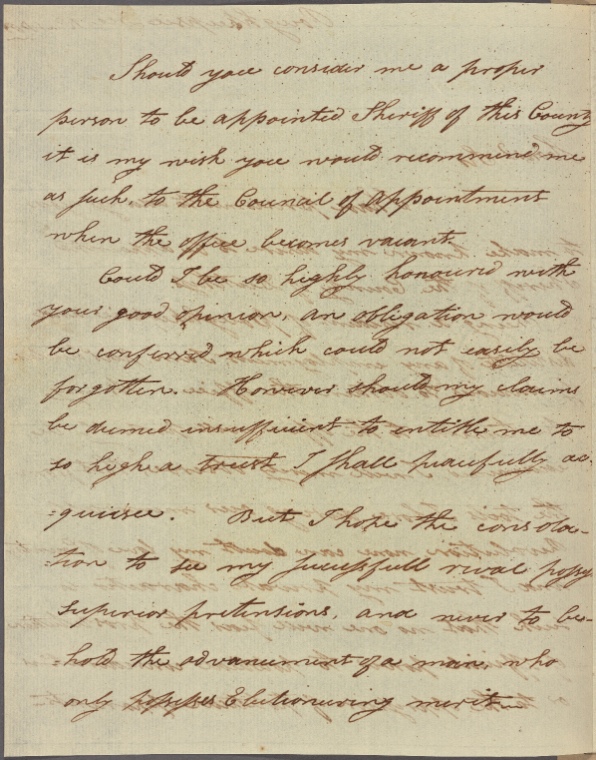 Should you consider me a proper
person to be appointed Sheriff of this County
it is my wish you would recommend me
as such, to the Council of Appointment
when the office becomes vacant
Could I be so highly honoured with
your good opinion, an obligation would
be conferred which could not easily be
forgotten. However should my claims
be deemed insufficient to entitle me to
so high a trust I shall peacefully ac-
=quiesce. But I hope the consola-
=tion to see my successfull rival possess
superior pretensions, and never to be-
=hold the advancement of a man, who
only possesses Electioneering merit